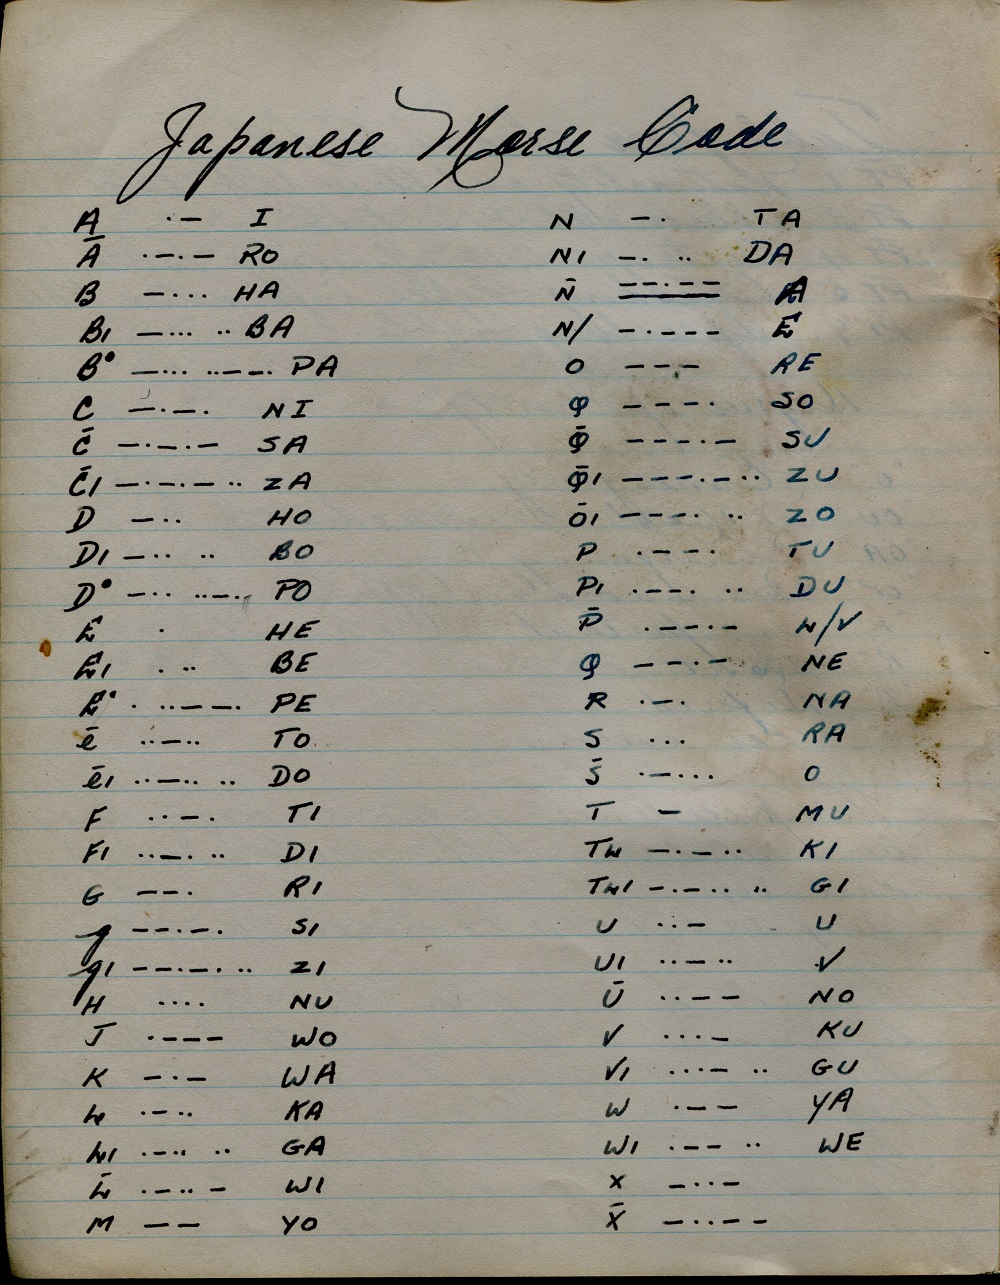 Japanese Morse Code
A ·— I
Ā ·—·— RO
B —··· HA
B1 —··· ·· BA
B° —··· ··——· PA
C —·—· NI
C̄ —·—·— SA
C̄1 —·—·— ·· ZA
D —·· HO
D1 —·· ·· BO
D° —·· ··——· PO
E · HE
E1 · ·· BE
E° · ··——· PE
ē ··—·· TO
ē1 ··—·· ·· DO
F ··—· TI
F1 ··—· ·· DI
G ——· RI
g ——·—· SI
g1 ——·—· ·· ZI
H ···· NU
J ·——— WO
K —·— WA
L ·—·· KA
L1 ·—·· ·· GA
L̄ ·—··— WI
M —— YO
N —· TA
N1 —· ·· DA
N̄ ——·—— A
N/ —·——— E
O ——— RE
Q ———· SO
Q̄ ———·— SU
Q̄1 ———·— ·· ZU
Ō1 ———· ·· ZO
P ·——· TU
P1 ·——· ·· DU
P̄ ·——·— N/V
Q ——·— NE
R ·—· NA
S ··· RA
S̄ ·—··· O
T — MU
TL —·—·· KI
TL1 —·—·· ·· GI
U ··— U
U1 ··— ·· V
Ū ··—— NO
V ···— KU
V1 ···— ·· GU
W ·—— YA
W1 ·—— ·· WE
X —··—
X̄ —··——